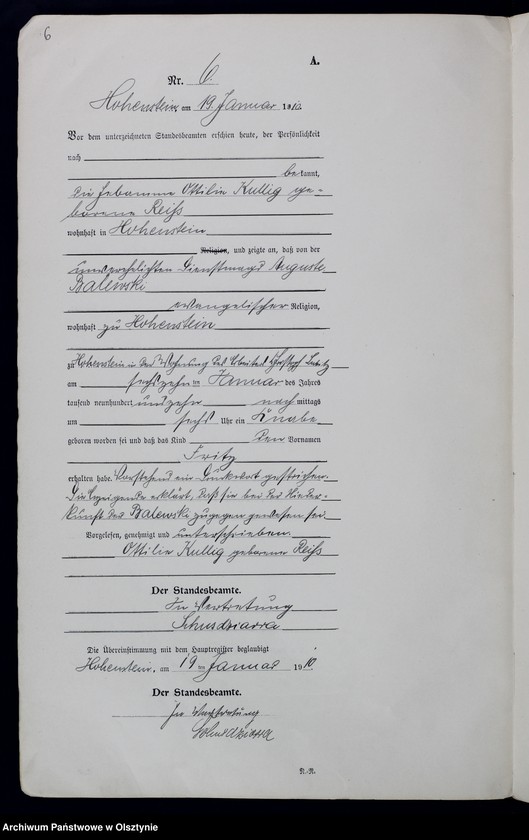 6
A.
Nr. 6.
Hohenstein, am 19. Januar 1910.
Vor dem unterzeichneten Standesbeamten erschien heute, der Persönlichkeit
nach
bekannt,
die Hebamme Ottilie Kullig ge-
borene Reiss
wohnhaft in Hohenstein
Religion, und zeigte an, daß von der
unverehelichten Dienstmagd Auguste
Balewski
evangelischer Religion,
wohnhaft zu Hohenstein
zu Hohenstein in der Wohnung des Arbeiters
am sechszehn ten Januar des Jahres
tausend neunhundert und zehn nach mittags
um sechs Uhr ein Knabe
geboren worden sei und daß das Kind den Vornamen
Fritz
erhalten habe. Vorstehend ein Druckwort gestrichen.
Die Anzeigende erklärt, daß sie bei der Nieder-
kunft der Balewski zugegen gewesen sei.
Vorgelesen, genehmigt und unterschrieben.
Ottilie Kullig geborene Reiss
Der Standesbeamte.
In Vertretung
Schusdziarra
Die Übereinstimmung mit dem Hauptregister beglaubigt
Hohenstein, am 19 ten Januar 1910.
Der Standesbeamte.
In Vertretung
Schusdziarra
Archiwum Państwowe w Olsztynie